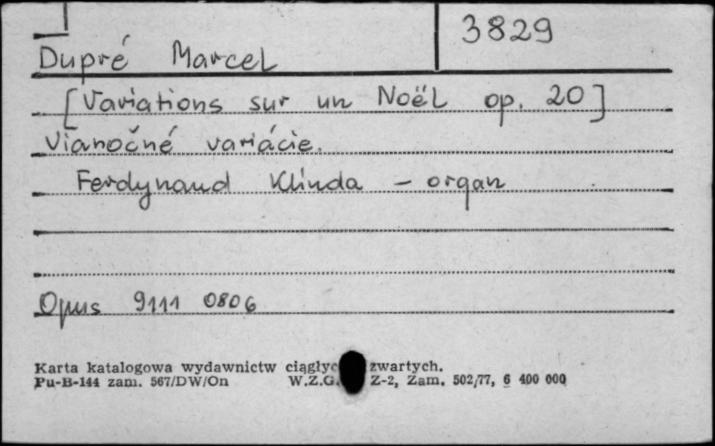 3829
Dupré Marcel
[Variations sur un Noël op. 20]
Vianočné variácie.
Ferdynand Klinda - organ
Opus 9111 0806
Karta katalogowa wydawnictw zwartych.
Pu-B-144 zam. 567/DW/On W.Z.G. Z-2, Zam. 502/77, 6 400 000